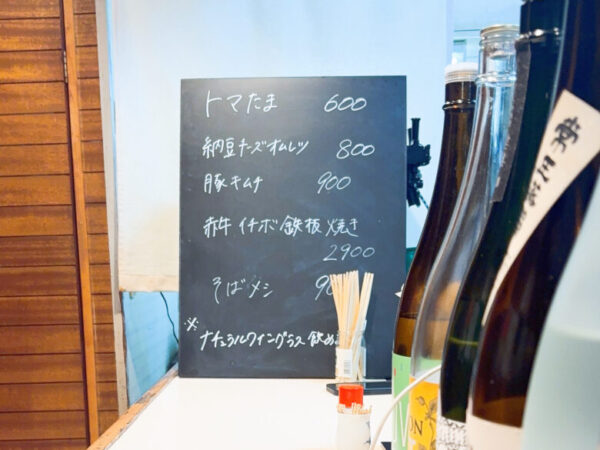 トマたま 600
納豆チーズオムレツ 800
豚キムチ 900
赤牛 イチボ 鉄板焼き
2900
そばメシ 90
※
ナチュラルワイングラス飲め
ON